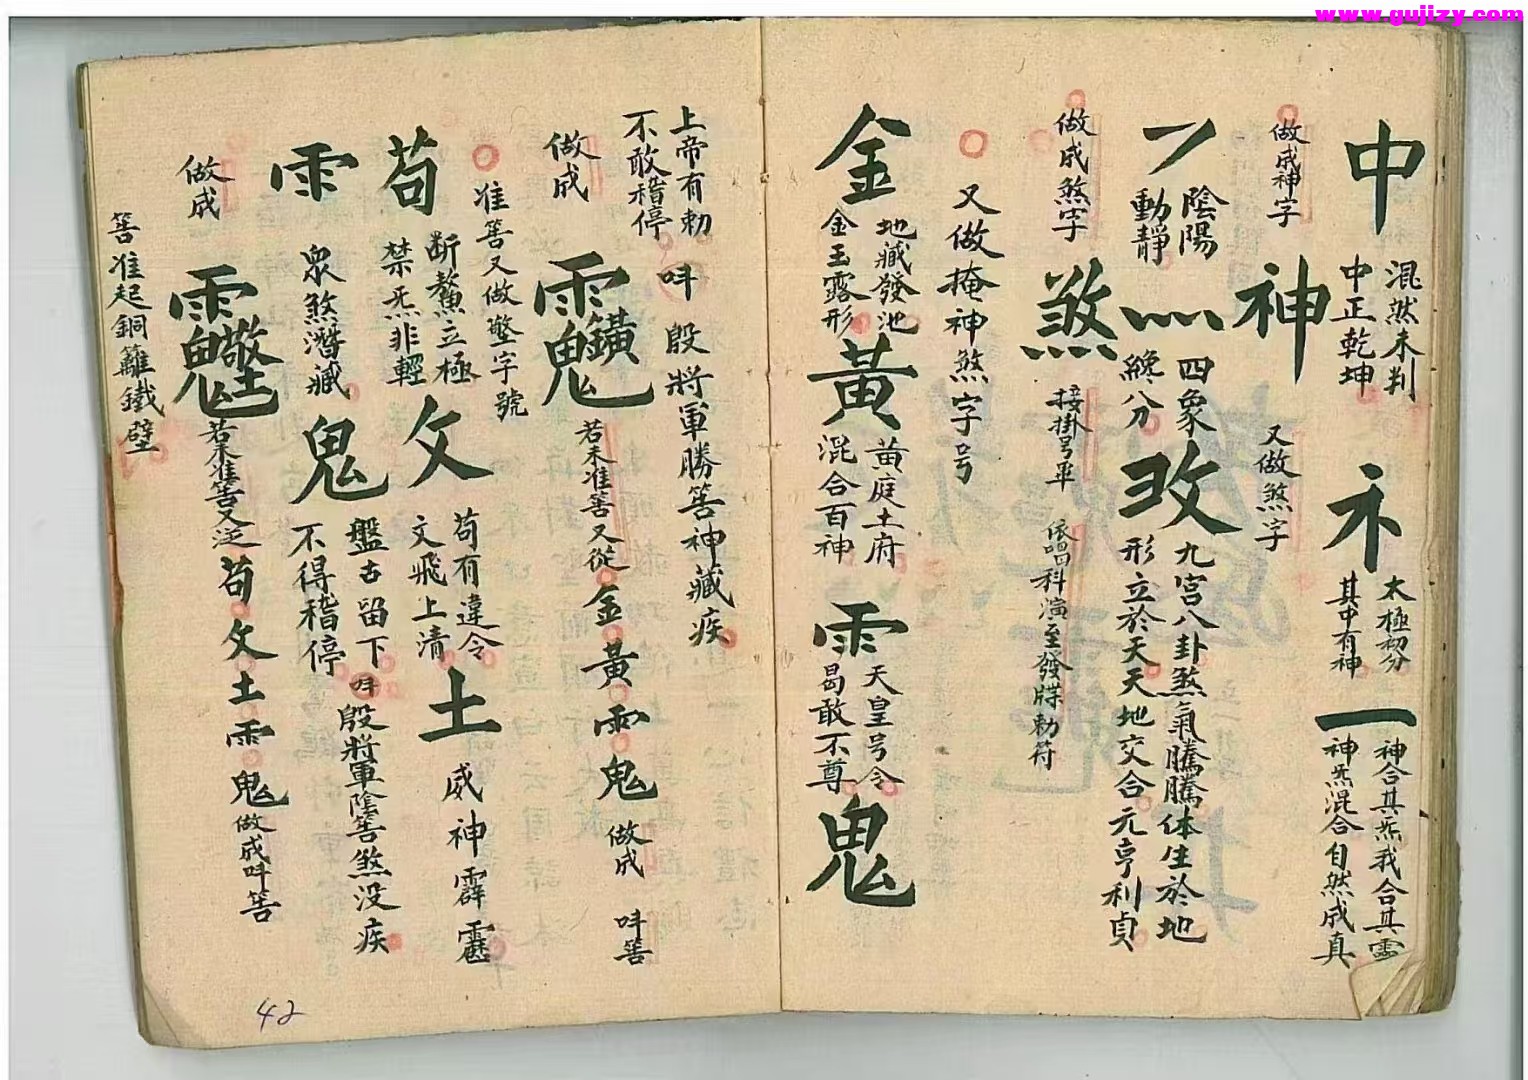 www.gujizy.com
中 混然未判 中正乾坤 礻 太極初分 其中有神 一 神合其炁我合其靈 神炁混合自然成真
做成神字 神 又做煞字
⺈ 陰陽 動靜 灬 四象 纔八分 攵 九宮八卦煞氣騰騰体生於地 形立於天天地交合元亨利貞
做成煞字 煞 接掛号畢 依唱科演至發牒勅符
又做掩神煞字号
金 地藏發池 金玉露形 黃 黃庭土府 混合百神 雨 天皇号令 曷敢不尊 鬼
上帝有勅 不敢稽停 吽 殷將軍勝筶神藏疾
做成 若未准筶又從金黃雨鬼做成 吽筶
准筶又做 字號
苟 断鰲立極 禁炁非輕 攵 苟有違令 文飛上清 土 威神霹靂
雨 眾煞潛藏 鬼 盤古留下 不得稽停 吽 殷將軍陰筶煞没疾
做成 若未准筶又 苟攵土雨鬼做成吽筶
筶准起銅籬鐵壁
42